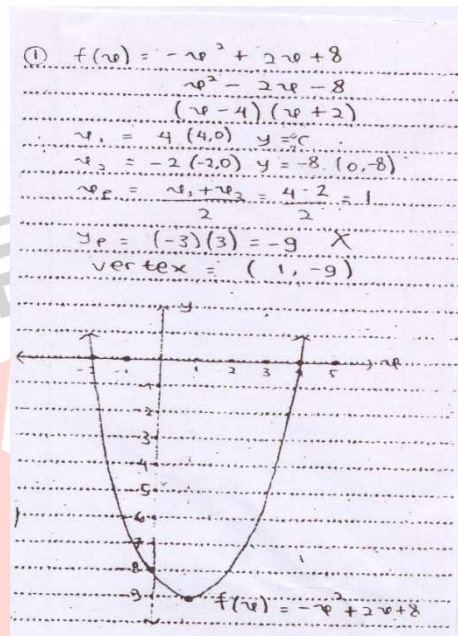 ① f(x) = -x² + 2x + 8
x² - 2x - 8
(x - 4)(x + 2)
x₁ = 4 (4,0) y = c
x₂ = -2 (-2,0) y = -8 (0,-8)
xₚ = x₁ + x₂ / 2 = 4 - 2 / 2 = 1
yₚ = (-3)(3) = -9 X
vertex = (1, -9)
y
-2 -1 1 2 3 4 5 x
-1
-2
-3
-4
-5
-6
-7
-8
-9 f(x) = -x² + 2x + 8